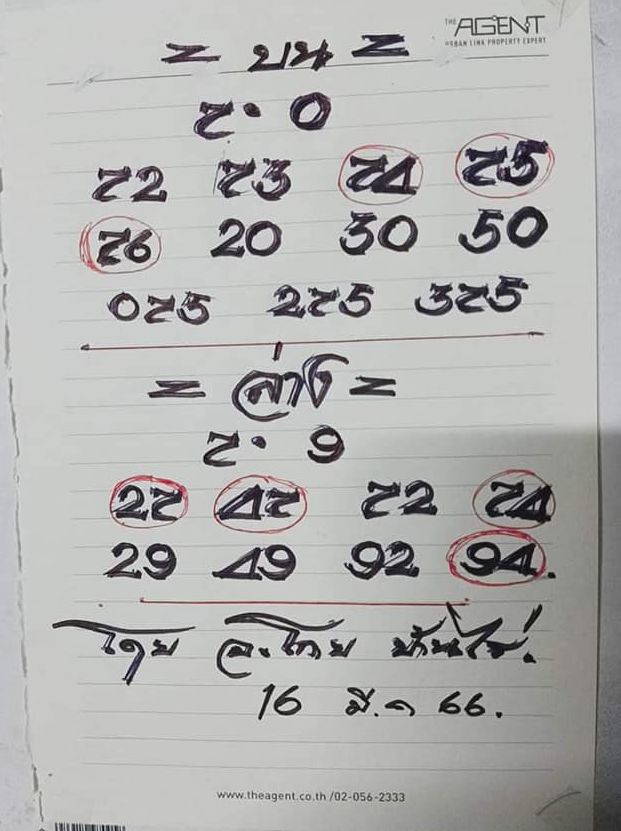 THE AGENT
URBAN LINK PROPERTY EXPERT
= บน =
7 · 0
72 73 74 75
76 20 30 50
075 275 375
= ล่าง =
7 · 9
27 47 72 74
29 49 92 94.
โดย บ้านไร่.
16 มี.ค 66.
www.theagent.co.th /02-056-2333